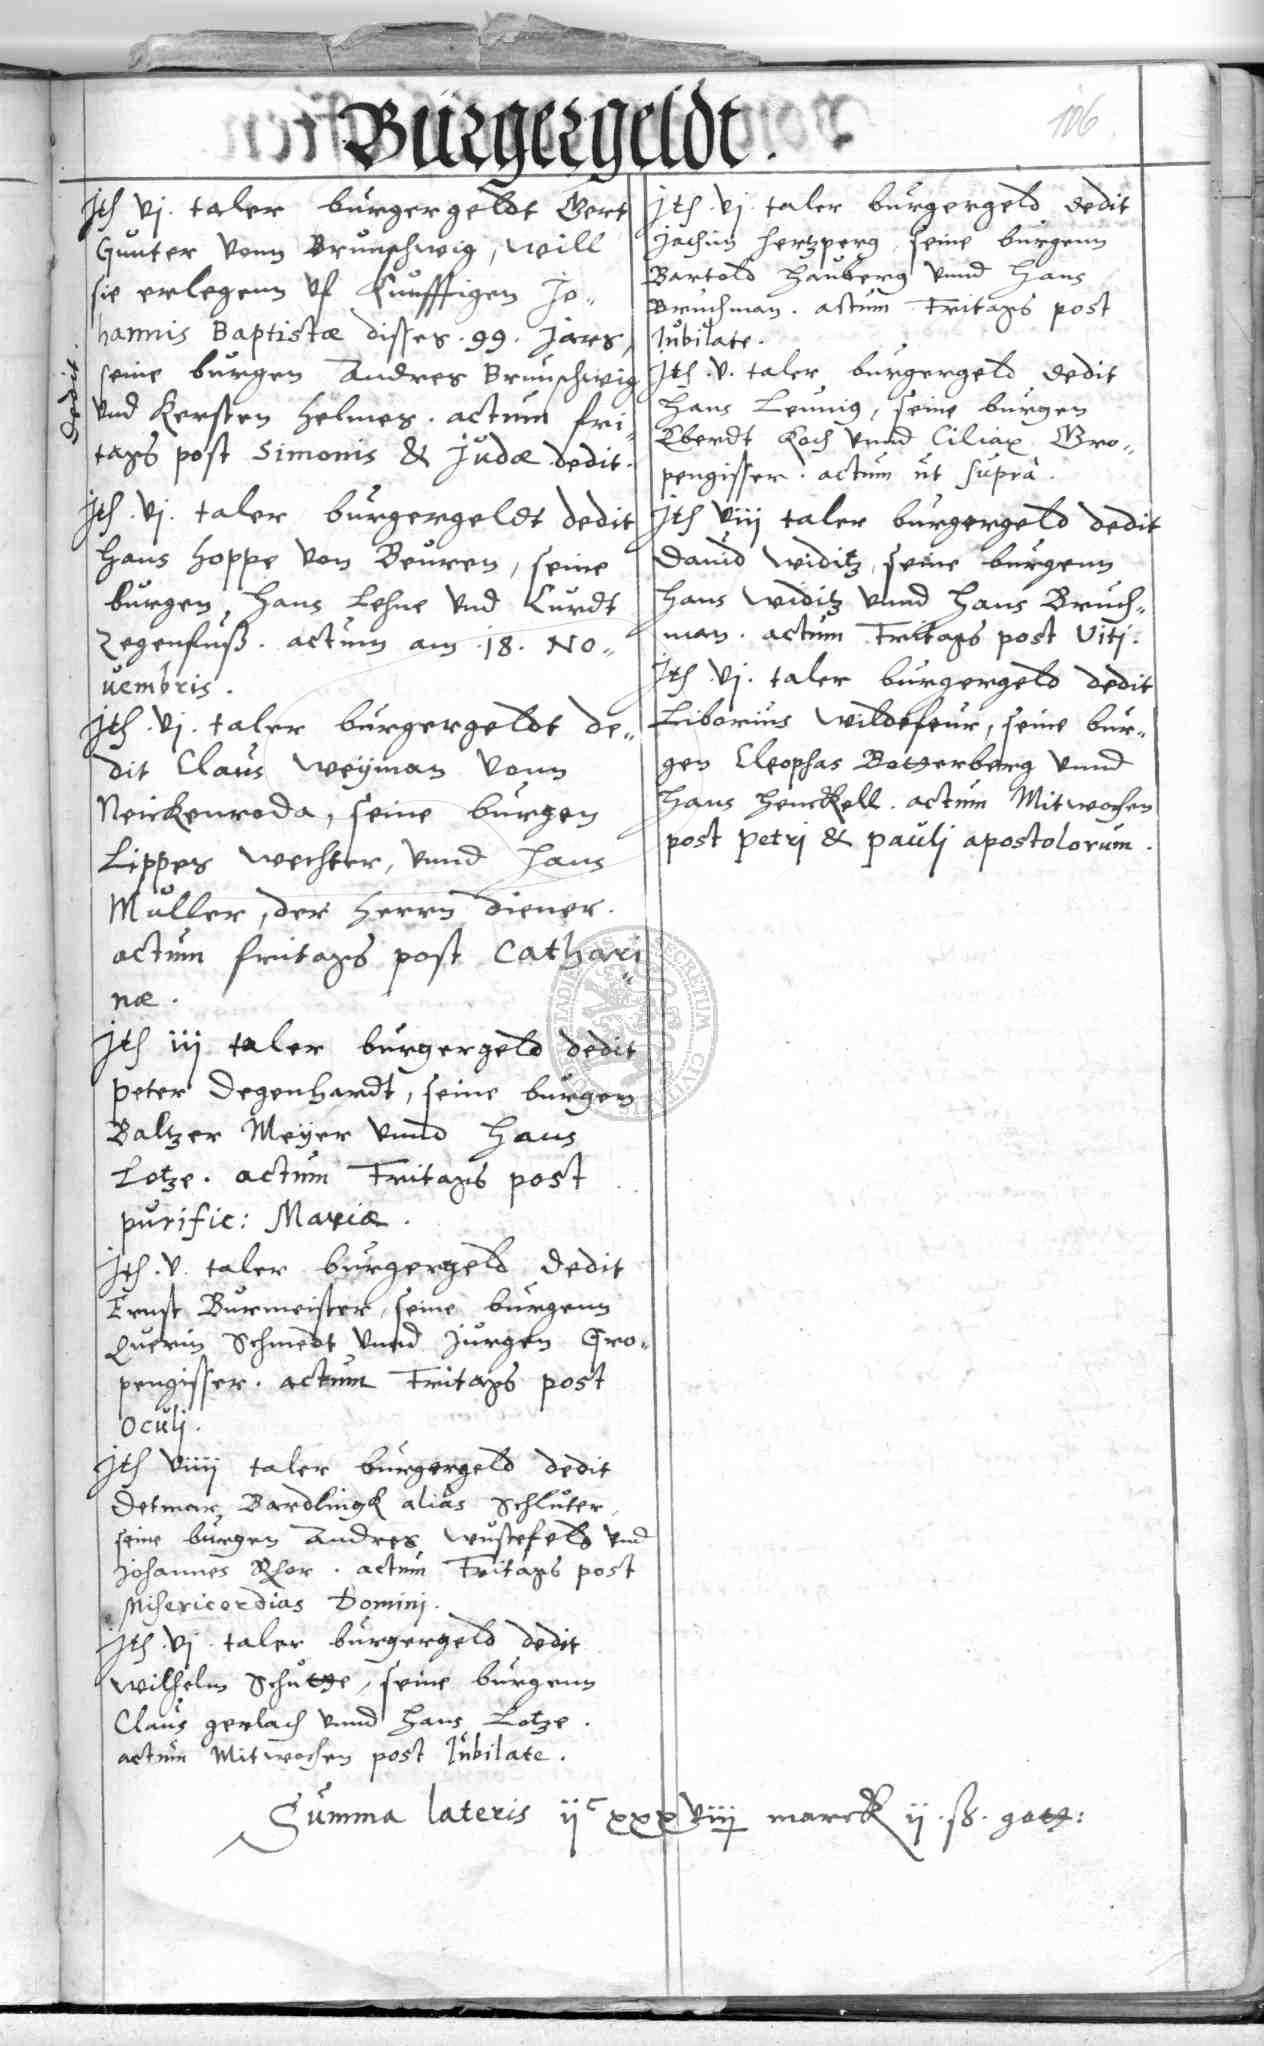 Bürgergeldt.
106
Jth vj. taler bürgergeldt Gert
Gunter vonn Brunschwig, will
sie erlegenn vf Kunfftigen Jo„
hannis Baptistæ disses .99. Jars,
seine bürgen Andres Brunschwig
vnd Kersten Helmes. actum fri„
tags post Simonis & Judæ dedit.
dedit.
Jth .vj. taler bürgergeldt dedit
Hans Hoppe von Beuren, seine
bürgen, Hans Lehne vnd Curdt
Zegenfuß. actum am .18. No„
uembris.
Jth .vj. taler bürgergeldt de„
dit Claus Weÿman vonn
Neickenroda, seine bürgen
Lippes Wechter, vnnd Hans
Müller, der Herrn diener.
actum fritags post Cathari„
næ.
Jth iij taler bürgergeld dedit
Peter Degenhardt, seine bürgen
Baltzer Meÿer vnnd Hans
Lotze. actum Fritags post
purific: Mariæ.
Jth .v. taler bürgergeld dedit
Ernst Burmeister, seine bürgenn
Querin Schmedt vnnd Jürgen Gro„
pengisser. actum Fritags post
Oculj.
Jth viiij taler bürgergeld dedit
Detmar Bardlingk alias Schlüter,
seine bürgen Andres Wüstefeld vnd
Johannes Rhor. actum Fritags post
Misericordias Dominj.
Jth .vj. taler bürgergeld dedit
Wilhelm Schütze, seine bürgenn
Claus Gerlach vnnd Hans Lotze.
actum Mitwochen post Jubilate.
Jth .vj. taler bürgergeld dedit
Jochim Hertzperg, seine bürgenn
Bartold Hauberg vnnd Hans
Bruchman. actum Fritags post
Jubilate.
Jth .v. taler bürgergeld dedit
Hans Leunig, seine bürgen
Eberdt Koch vnnd Ciliax Gro„
pengisser. actum ut supra.
Jth viij taler bürgergeld dedit
Dauid Widitz, seine bürgenn
Hans Widitz vnnd Hans Bruch„
man. actum Fritags post Vitj.
Jth .vj. taler bürgergeld dedit
Liborius Wildefeur, seine bür„
gen Cleophas Botzerberg vnnd
Hans Henckell. actum Mitwochen
post Petrj & Paulj apostolorum.
Summa lateris ijc xxxviiij marck ij .ß. gott:
SECRETUM CIVITATIS